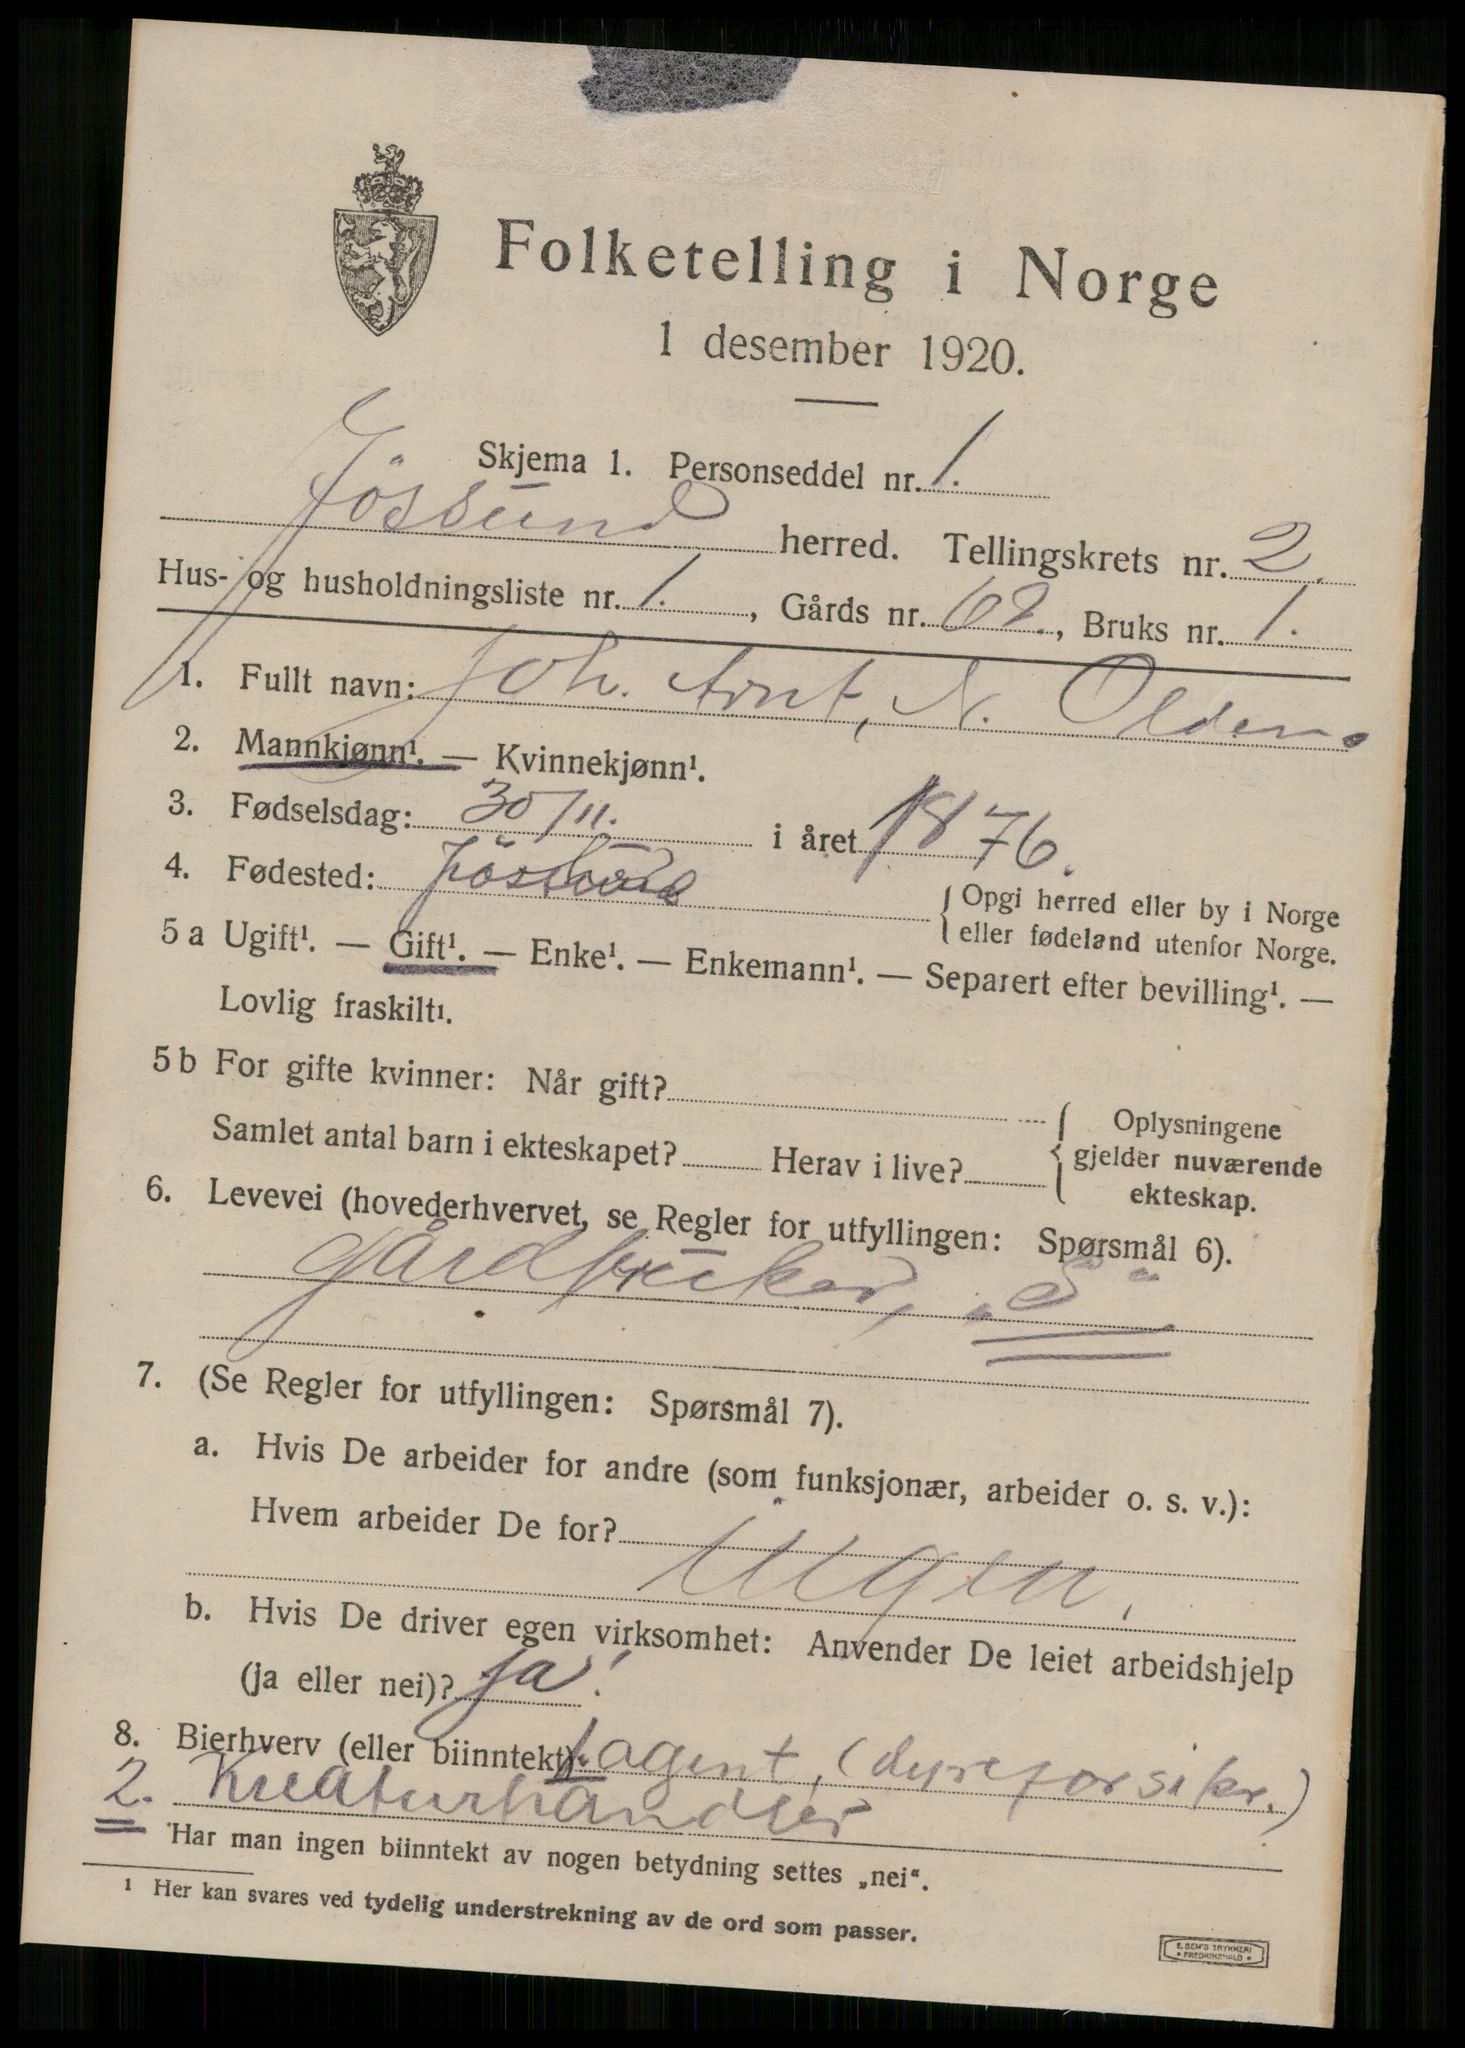 Folketelling i Norge
1 desember 1920.
Skjema 1. Personseddel nr. 1.
Jössund herred. Tellingskrets nr. 2.
Hus- og husholdningsliste nr. 1., Gårds nr. 62., Bruks nr. 1.
1. Fullt navn: Joh. Arnt, N. Olden.
2. Mannkjønn¹. — Kvinnekjønn¹.
3. Fødselsdag: 30/11. i året 1876.
4. Fødested: Jössund { Opgi herred eller by i Norge
eller fødeland utenfor Norge.
5 a Ugift¹. — Gift¹. — Enke¹. — Enkemann¹. — Separert efter bevilling¹. —
Lovlig fraskilt¹.
5 b For gifte kvinner: Når gift?
Samlet antal barn i ekteskapet? Herav i live?
{ Oplysningene
gjelder nuværende
ekteskap.
6. Levevei (hovederhvervet, se Regler for utfyllingen: Spørsmål 6).
Gårdbruker, „S“
7. (Se Regler for utfyllingen: Spørsmål 7).
a. Hvis De arbeider for andre (som funksjonær, arbeider o. s. v.):
Hvem arbeider De for?
Ingen.
b. Hvis De driver egen virksomhet: Anvender De leiet arbeidshjelp
(ja eller nei)? ja!
8. Bierhverv (eller biinntekt): 1 agent, (dyreforsikr.)
2. Kreaturhandler
Har man ingen biinntekt av nogen betydning settes „nei“.
¹ Her kan svares ved tydelig understrekning av de ord som passer.
E. SEM'S TRYKKERI
• FREDRIKSHALD •